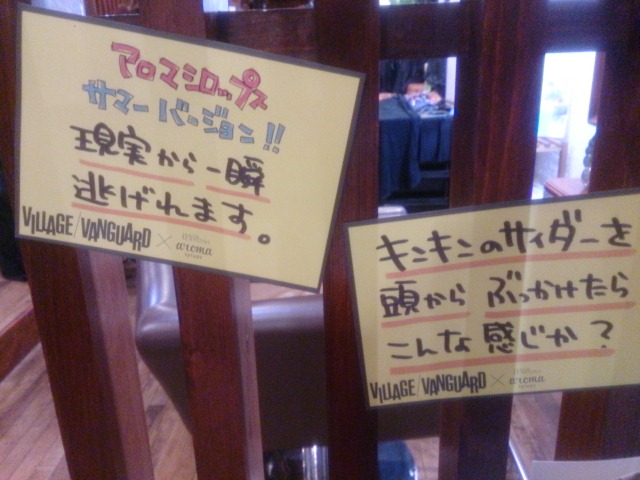 アロマシロップス
サマーバージョン!!
現実から一瞬
逃げれます。
VILLAGE/VANGUARD × aroma
キンキンのサイダーを
頭からぶっかけたら
こんな感じか?
VILLAGE/VANGUARD × aroma